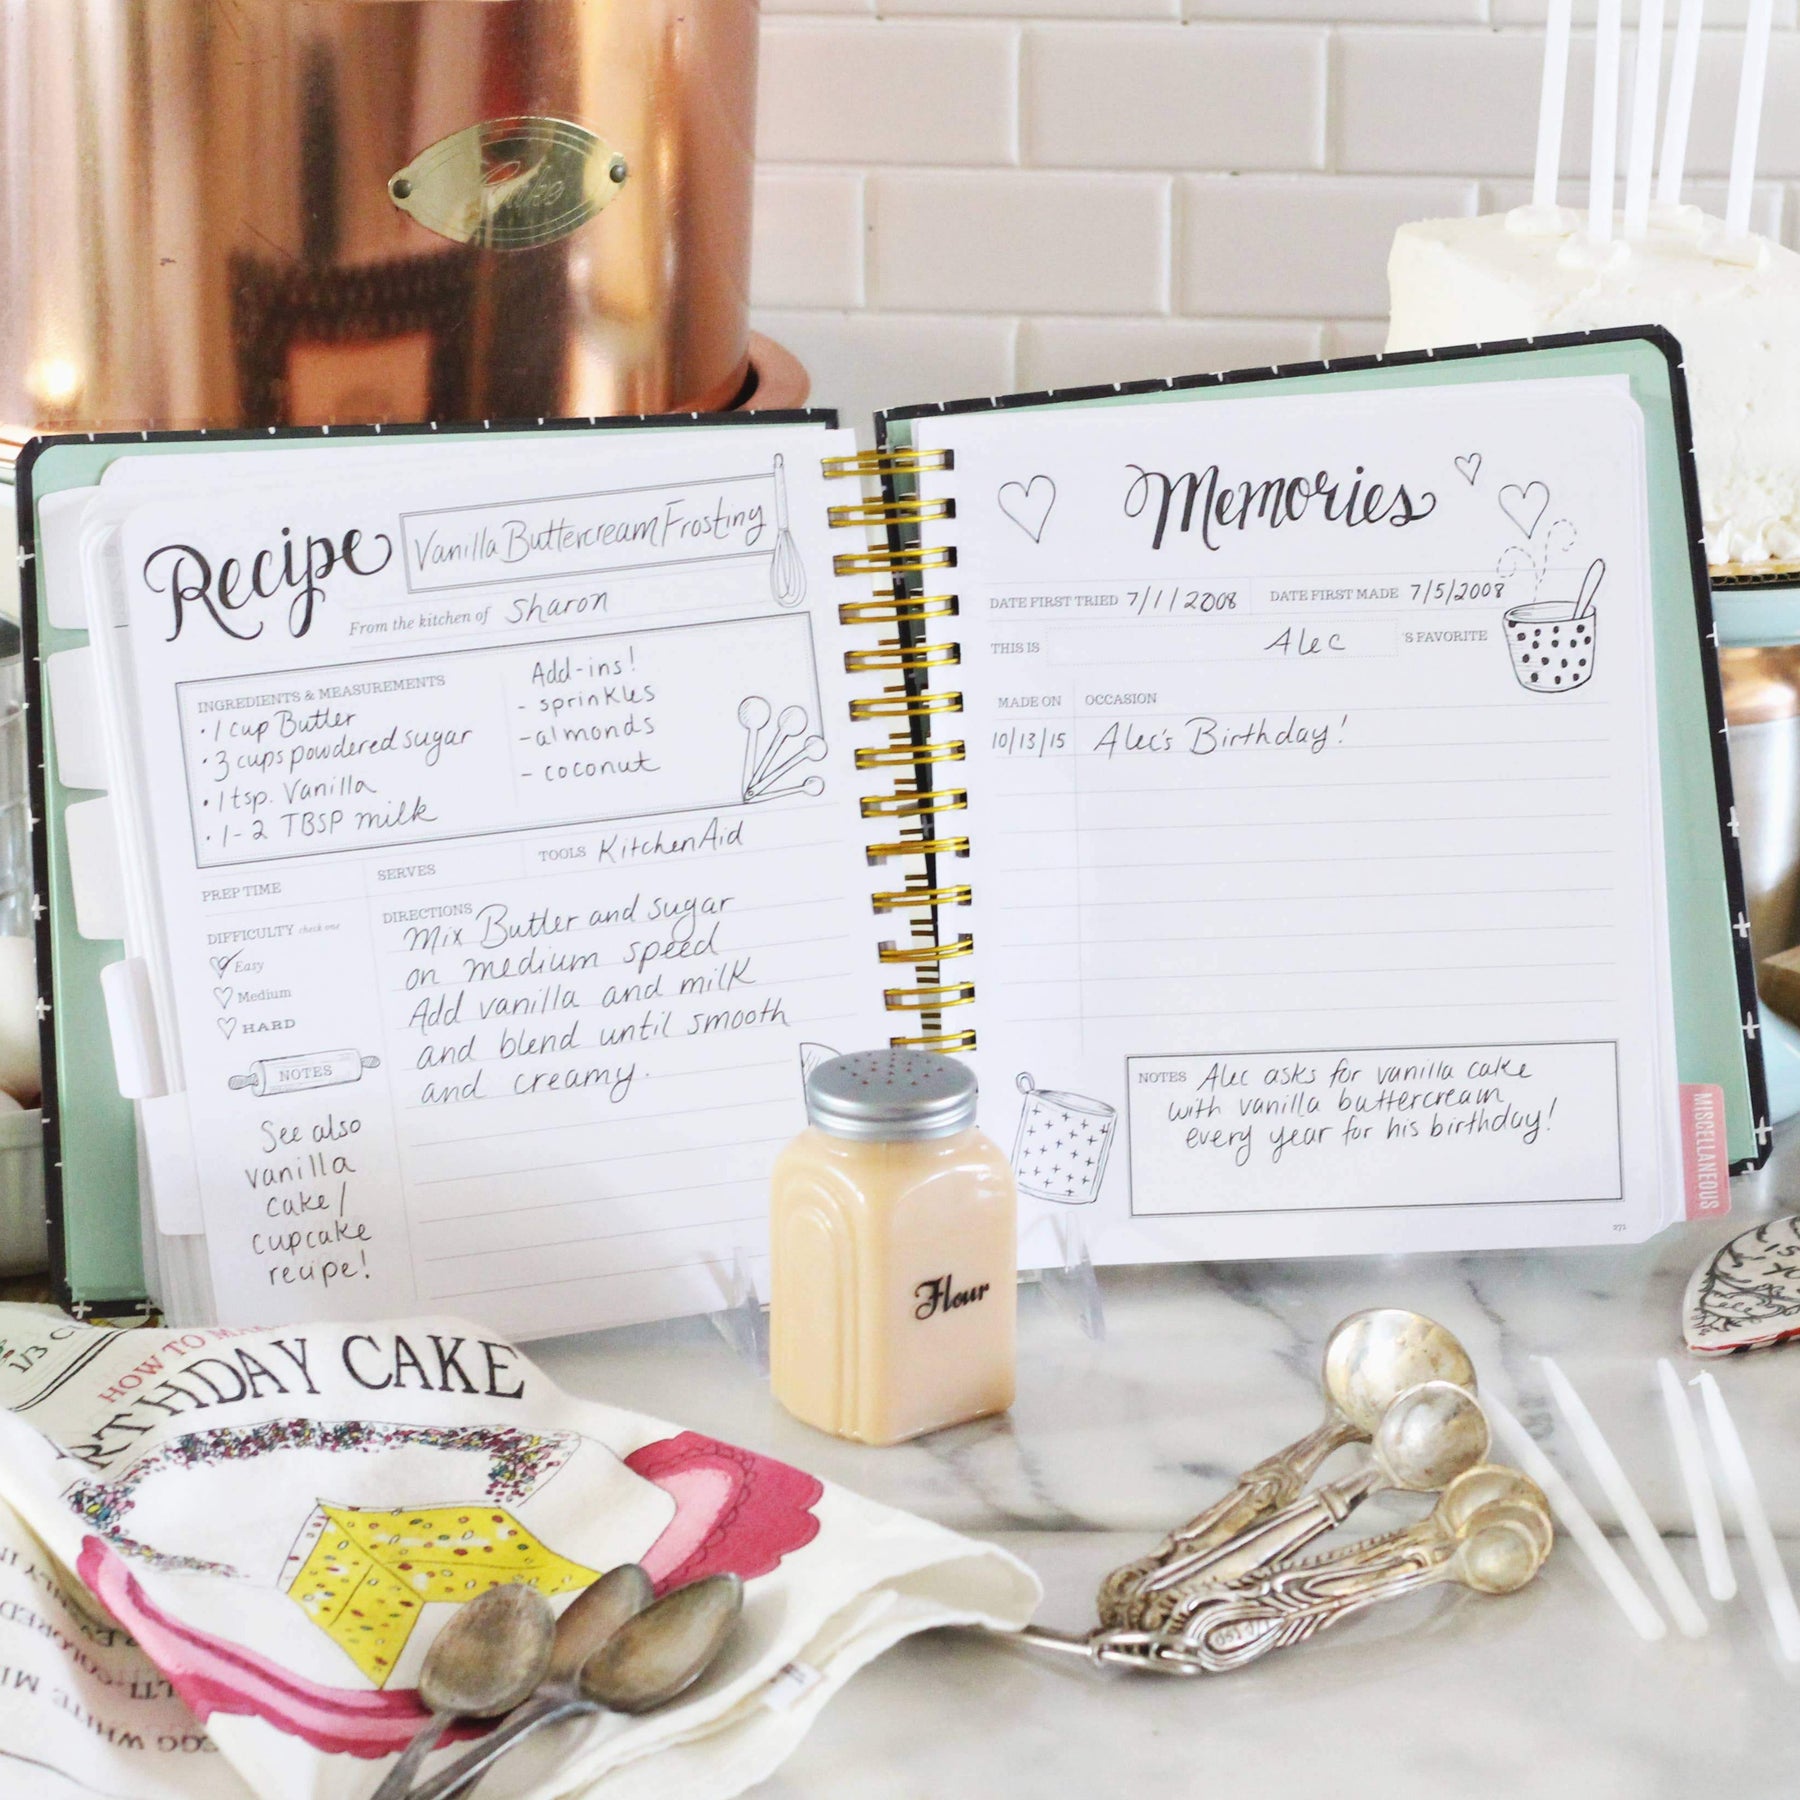 Cake
Recipe
Vanilla Buttercream Frosting
From the kitchen of Sharon
INGREDIENTS & MEASUREMENTS
• 1 cup Butter
• 3 cups powdered sugar
• 1 tsp. Vanilla
• 1-2 TBSP milk
Add-ins!
- sprinkles
- almonds
- coconut
PREP TIME
SERVES
TOOLS KitchenAid
DIFFICULTY check one
Easy
Medium
HARD
NOTES
See also
vanilla
cake/
cupcake
recipe!
DIRECTIONS
Mix Butter and sugar
on medium speed
Add vanilla and milk
and blend until smooth
and creamy.
Memories
DATE FIRST TRIED 7/1/2008
DATE FIRST MADE 7/5/2008
THIS IS Alec 'S FAVORITE
MADE ON OCCASION
10/13/15 Alec's Birthday!
NOTES Alec asks for vanilla cake
with vanilla buttercream
every year for his birthday!
271
MISCELLANEOUS
Flour
1/3 C
HOW TO MA
RTHDAY CAKE
EGG WHITE MI